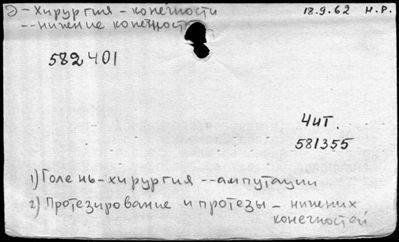 Э - Хирургия - конечности 18.9.62 Н.Р.
-- нижние конечности
582401
Чит.
581355
1) Голень - хирургия -- ампутации
2) Протезирование и протезы - нижних
конечностей